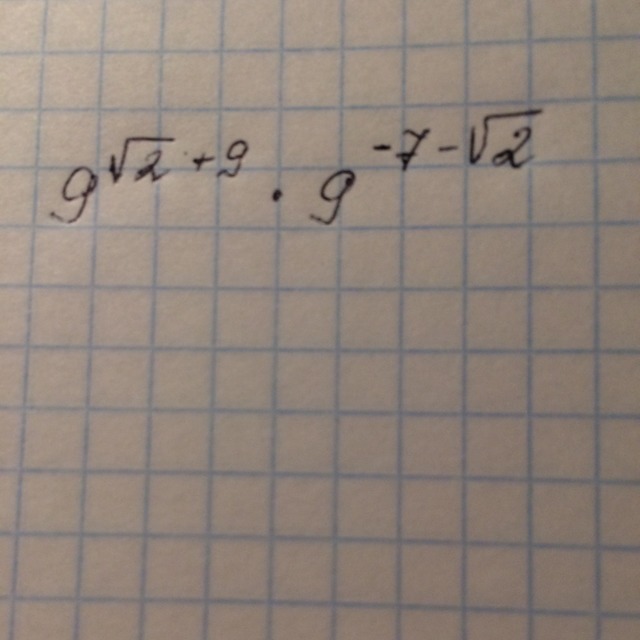 9^{√2+9} · 9^{-7-√2}